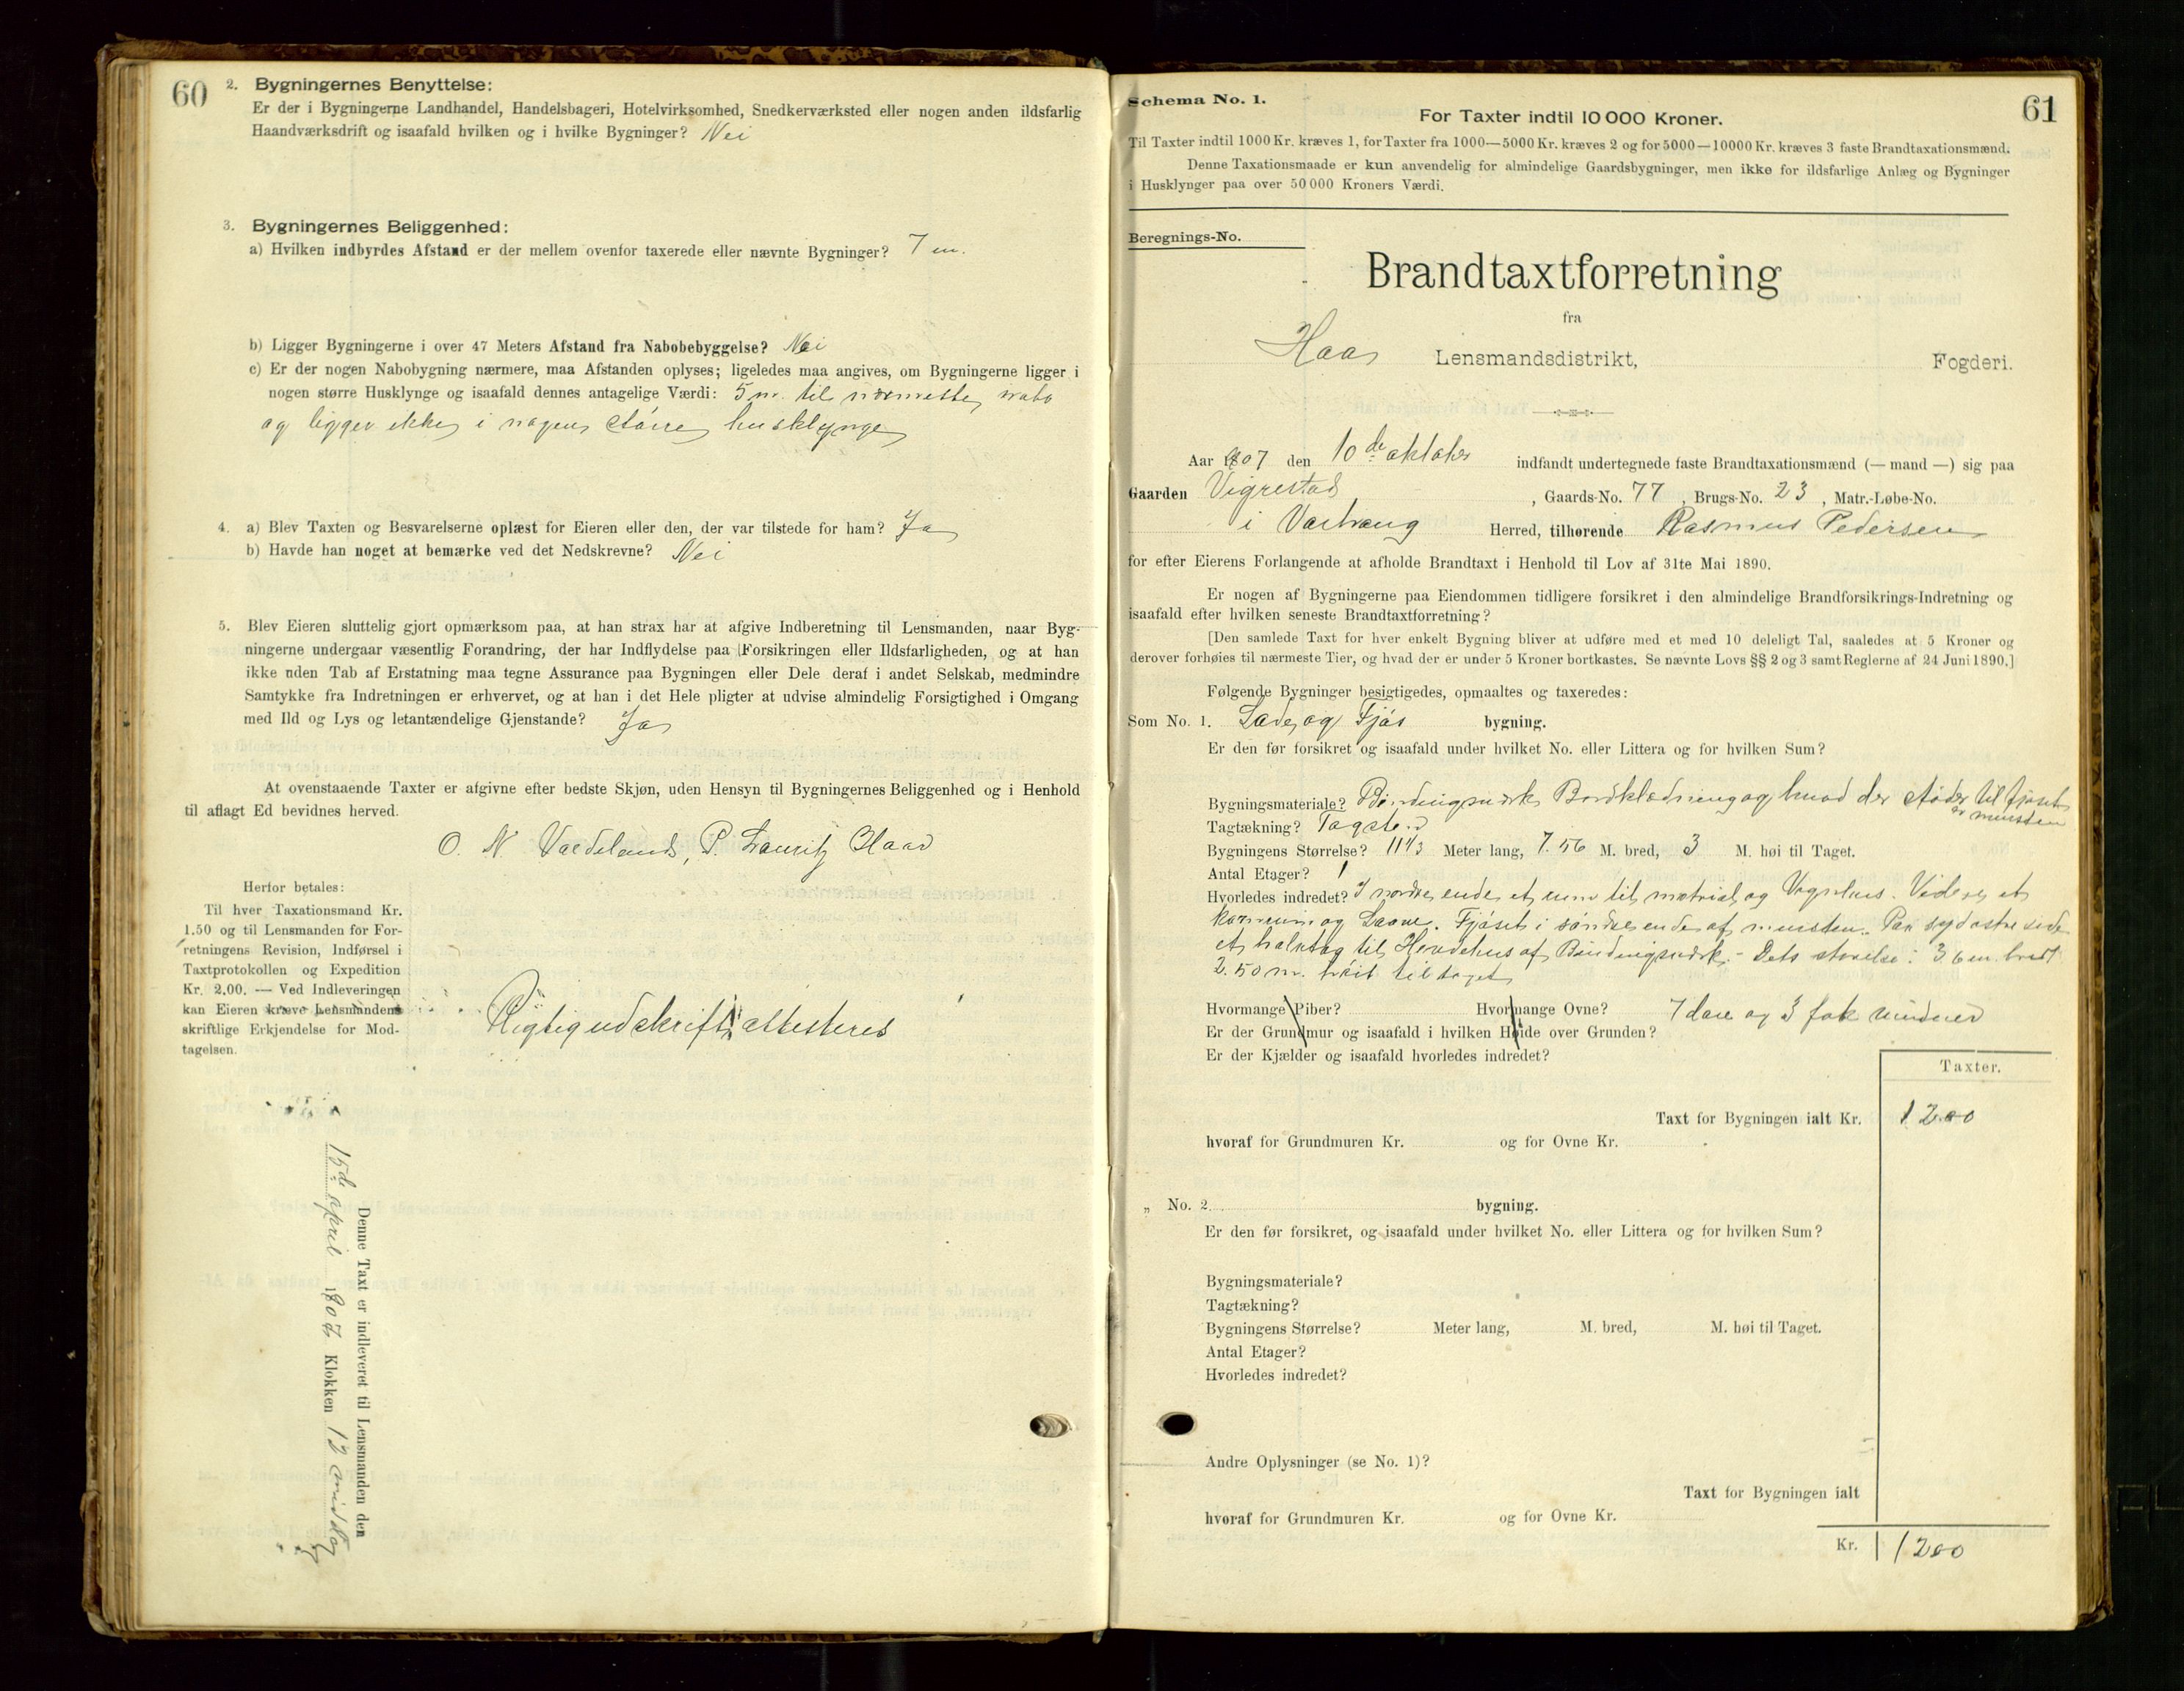 60
2. Bygningernes Benyttelse:
Er der i Bygningerne Landhandel, Handelsbageri, Hotelvirksomhed, Snedkerværksted eller nogen anden ildsfarlig
Haandværksdrift og isaafald hvilken og i hvilke Bygninger? Nei
3. Bygningernes Beliggenhed:
a) Hvilken indbyrdes Afstand er der mellem ovenfor taxerede eller nævnte Bygninger? 7 m.
b) Ligger Bygningerne i over 47 Meters Afstand fra Nabobebyggelse? Nei
c) Er der nogen Nabobygning nærmere, maa Afstanden oplyses; ligeledes maa angives, om Bygningerne ligger i
nogen større Husklynge og isaafald dennes antagelige Værdi: 5 m. til nærmeste nabo
og ligger ikke i nogen större husklynge
4. a) Blev Taxten og Besvarelserne oplæst for Eieren eller den, der var tilstede for ham? Ja
b) Havde han noget at bemærke ved det Nedskrevne? Nei
5. Blev Eieren sluttelig gjort opmærksom paa, at han strax har at afgive Indberetning til Lensmanden, naar Byg-
ningerne undergaar væsentlig Forandring, der har Indflydelse paa Forsikringen eller Ildsfarligheden, og at han
ikke uden Tab af Erstatning maa tegne Assurance paa Bygningen eller Dele deraf i andet Selskab, medmindre
Samtykke fra Indretningen er erhvervet, og at han i det Hele pligter at udvise almindelig Forsigtighed i Omgang
med Ild og Lys og letantændelige Gjenstande? Ja
At ovenstaaende Taxter er afgivne efter bedste Skjøn, uden Hensyn til Bygningernes Beliggenhed og i Henhold
til aflagt Ed bevidnes herved.
O. N. Vardelands, P. Lauritz Haar
Herfor betales:
Til hver Taxationsmand Kr.
1.50 og til Lensmanden for For-
retningens Revision, Indførsel i
Taxtprotokollen og Expedition
Kr. 2.00. — Ved Indleveringen
kan Eieren kræve Lensmandens
skriftlige Erkjendelse for Mod-
tagelsen.
Rigtig udskrift attesteres
Denne Taxt er indleveret til Lensmanden den
15de april 1907 Klokken 12 middag
Schema No. 1.
61
For Taxter indtil 10 000 Kroner.
Til Taxter indtil 1000 Kr. kræves 1, for Taxter fra 1000—5000 Kr. kræves 2 og for 5000—10000 Kr. kræves 3 faste Brandtaxationsmænd.
Denne Taxationsmaade er kun anvendelig for almindelige Gaardsbygninger, men ikke for ildsfarlige Anlæg og Bygninger
i Husklynger paa over 50 000 Kroners Værdi.
Beregnings-No.
Brandtaxtforretning
fra
Haa Lensmandsdistrikt, Fogderi.
Aar 1907 den 10de oktober indfandt undertegnede faste Brandtaxationsmænd (— mand —) sig paa
Gaarden Vigrestad, Gaards-No. 77, Brugs-No. 23, Matr.-Løbe-No.
i Varhaug Herred, tilhørende Rasmus Pedersen
for efter Eierens Forlangende at afholde Brandtaxt i Henhold til Lov af 31te Mai 1890.
Er nogen af Bygningerne paa Eiendommen tidligere forsikret i den almindelige Brandforsikrings-Indretning og
isaafald efter hvilken seneste Brandtaxtforretning?
[Den samlede Taxt for hver enkelt Bygning bliver at udføre med et med 10 deleligt Tal, saaledes at 5 Kroner og
derover forhøies til nærmeste Tier, og hvad der er under 5 Kroner bortkastes. Se nævnte Lovs §§ 2 og 3 samt Reglerne af 24 Juni 1890.]
Følgende Bygninger besigtigedes, opmaaltes og taxeredes:
Som No. 1. Lade og Fjös bygning.
Er den før forsikret og isaafald under hvilket No. eller Littera og for hvilken Sum?
Bygningsmateriale? Bindingsverk, Bordklædning og hvad der stöder til fjöset
er mursten
Tagtækning? Tagsten
Bygningens Størrelse? 11 4/3 Meter lang, 7.56 M. bred, 3 M. høi til Taget.
Antal Etager? 1
Hvorledes indredet? I nordre ende et rum til matrial og Vognhus. Videre et
kornrum og Laave. Fjöset i söndre ende af mursten. Paa sydöstre side
et halvtag til Hendehus af Bindingsverk. - Dets störelse: 3 6 m. bredt
2.50 m. höit til taget
Hvormange Piber? Hvormange Ovne? 7 döre og 3 fak vinduer
Er der Grundmur og isaafald i hvilken Høide over Grunden?
Er der Kjælder og isaafald hvorledes indredet?
Taxter.
Taxt for Bygningen ialt Kr. 1200
hvoraf for Grundmuren Kr. og for Ovne Kr.
„ No. 2. bygning.
Er den før forsikret, og isaafald under hvilket No. eller Littera og for hvilken Sum?
Bygningsmateriale?
Tagtækning?
Bygningens Størrelse? Meter lang, M. bred, M. høi til Taget.
Antal Etager?
Hvorledes indredet?
Andre Oplysninger (se No. 1)?
Taxt for Bygningen ialt
hvoraf for Grundmuren Kr. og for Ovne Kr.
Kr. 1200